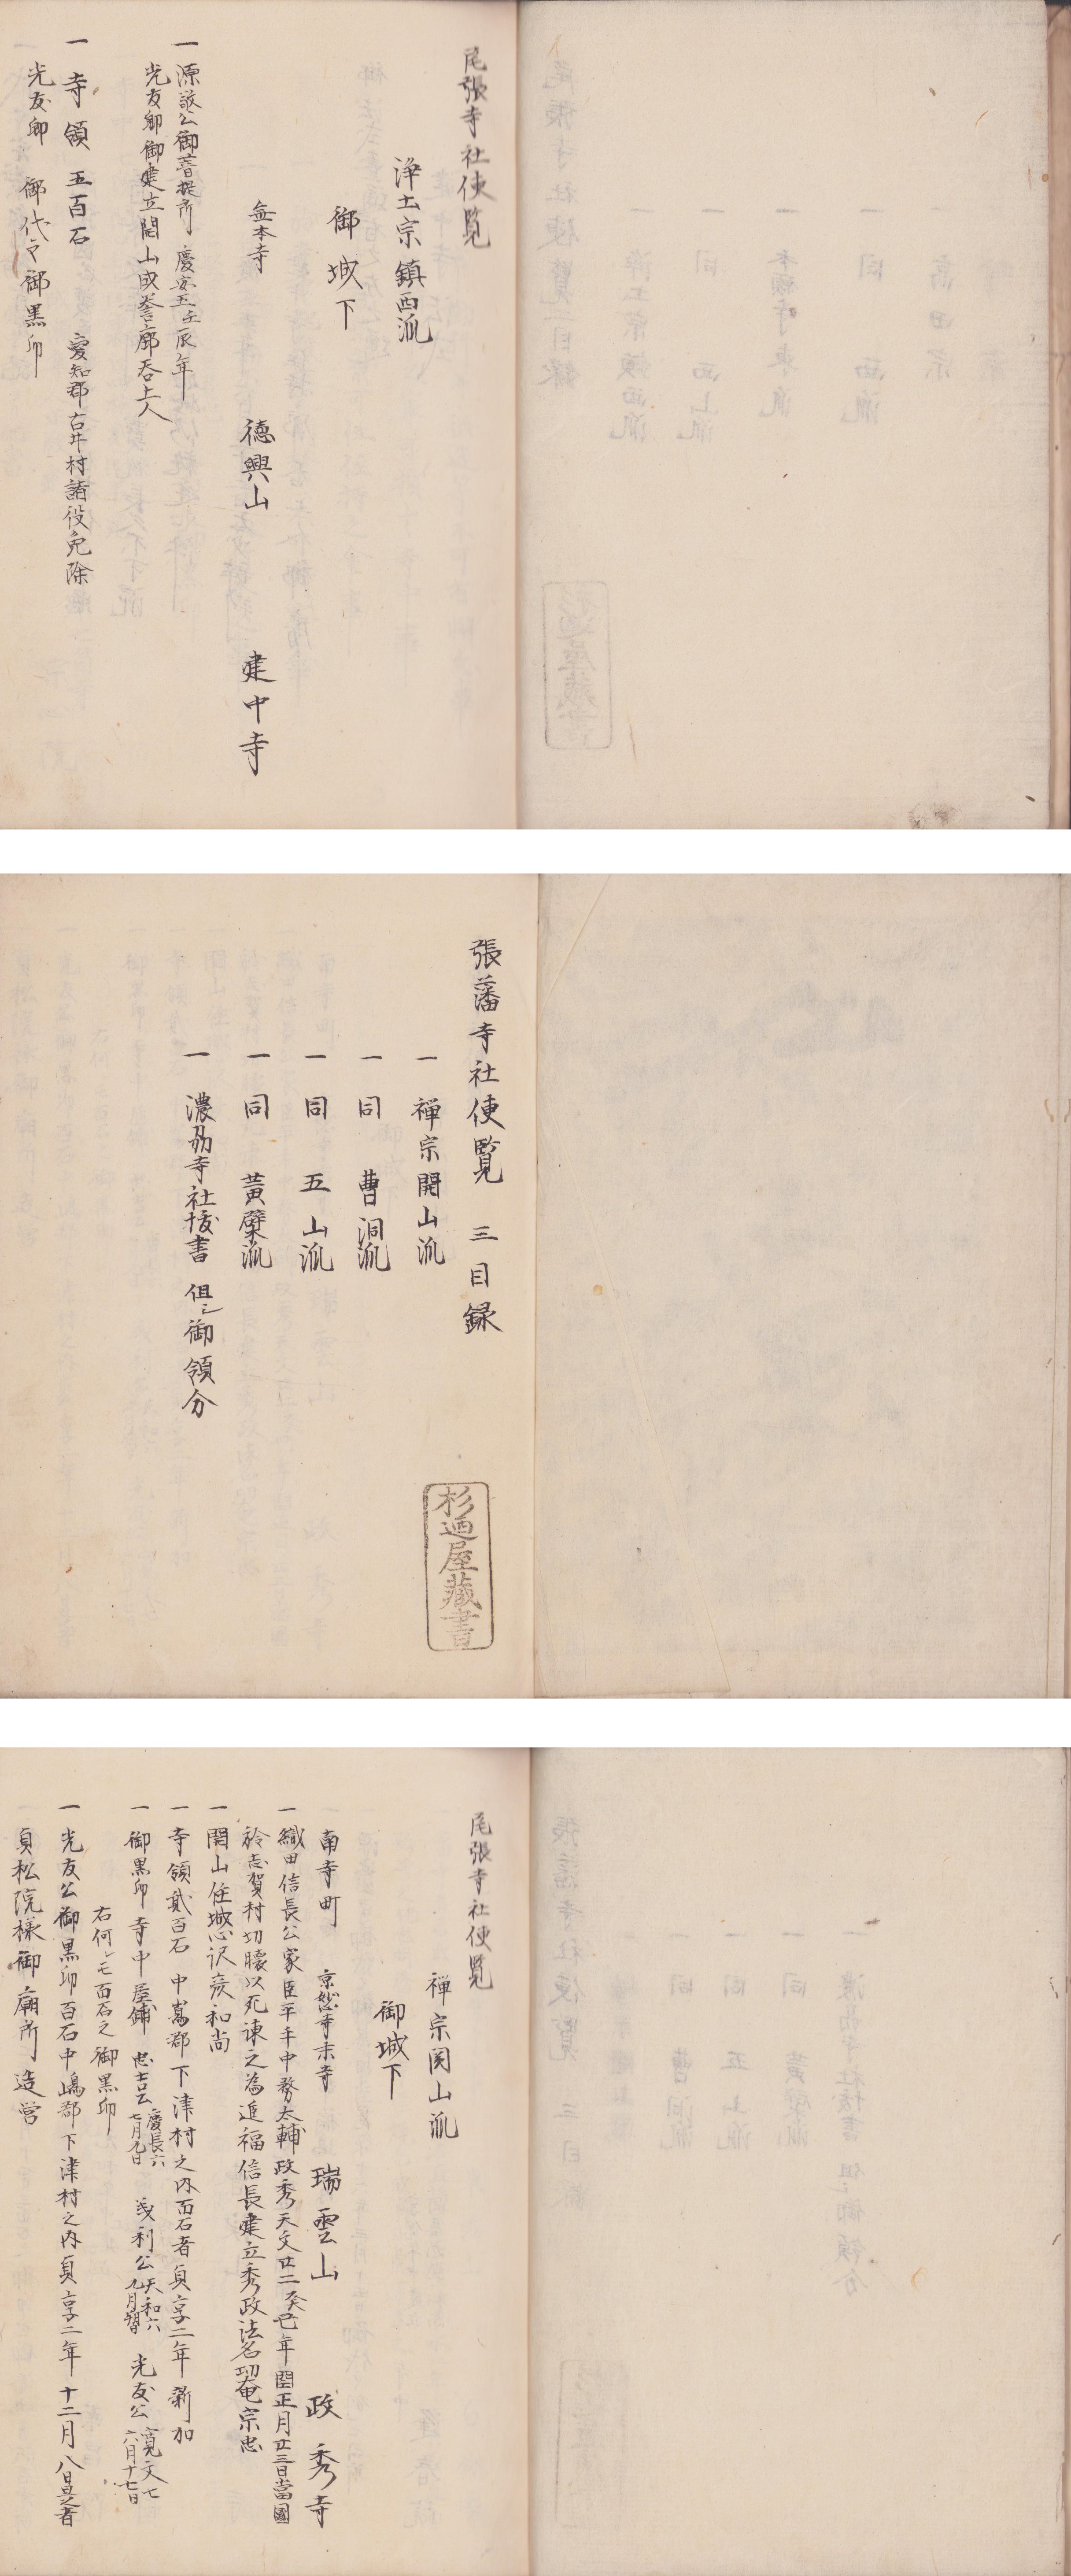 尾張寺社使覧
浄土宗鎮西流
御城下
無本寺 徳興山 建中寺
一源敬公御菩提所 慶安五壬辰年
光友卿御建立開山成誉廓呑上人
一 寺領 五百石 愛知郡古井村諸役免除
光友卿 御代々御黒印
張藩寺社使覧 三目録
一 禅宗開山流
一 同 曹洞流
一 同 五山流
一 同 黄檗流
一 濃州寺社抜書 但シ御領分
杉迺屋蔵書
尾張寺社使覧
禅宗関山流
御城下
南寺町 京妙心寺末寺 瑞雲山 政秀寺
一織田信長公家臣平手中務太輔政秀天文廿二癸巳年閏正月廿三日當國
於志賀村切腹以死諫之為追福信長建立秀政法名功庵宗忠
一開山住城心沢彦和尚
一寺領貳百石 中嶌郡下津村之内百石者貞享二年新加
一御黒印 寺中屋舗 忠吉公慶長六七月九日 義利公天和六九月 光友公寛文七六月十七日
右何レモ百石之御黒印
一光友公御黒印百石中嶋郡下津村之内貞享二年十二月八日是者
貞松院様御廟所造営